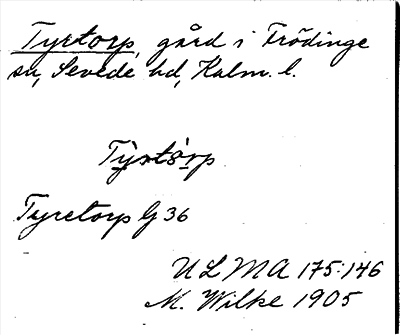 Tyrtorp, gård i Frödinge
sn, Sevede hd, Kalm. l.
Tyretorp G 36
ULMA 175:146
M. Wilke 1905